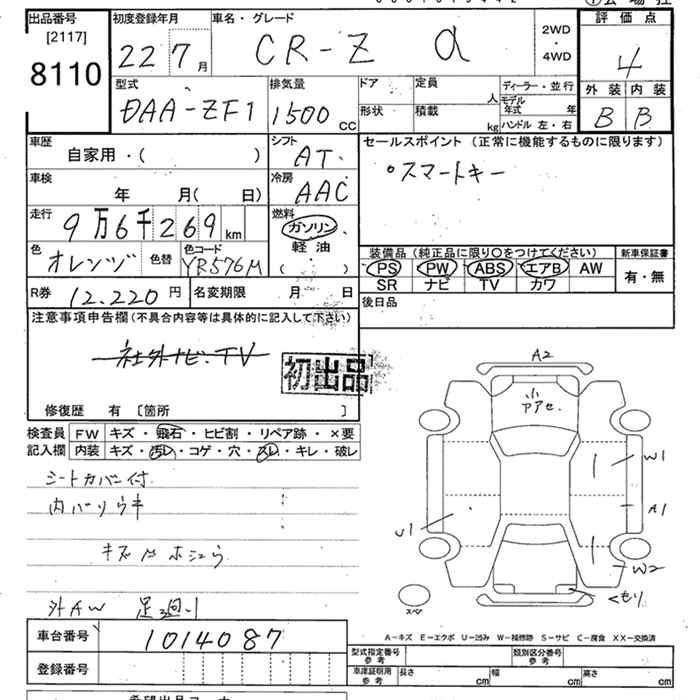 出品番号
[2117]
8110
初度登録年月
22 7月
車名・グレード
CR-Z α
2WD
・
4WD
評価点
4
外装 内装
B B
型式
DAA-ZF1
排気量
1500 cc
ドア
形状
定員
人
積載
kg
ディーラー・並行
モデル年式 年
ハンドル 左・右
車歴
自家用・( )
シフト
AT.
車検
年 月( 日)
冷房
AAC
走行
9万6千269 km
燃料
ガソリン
軽油
( )
色
オレンヅ
色替
色コード
YR576M
R券
12,220 円
名変期限 月 日
セールスポイント (正常に機能するものに限ります)
°スマートキー
装備品 (純正品に限り○をつけてください)
PS PW ABS エアB AW
SR ナビ TV カワ
新車保証書
有・無
後日品
注意事項申告欄(不具合内容等は具体的に記入して下さい)
社外ナビ.TV
初出品
修復歴 有 [箇所 ]
検査員
記入欄
FW キズ・飛石・ヒビ割・リペア跡・×要
内装 キズ・汚レ・コゲ・穴・スレ・キレ・破レ
シートカバー付
外AW
A2
小
W1
A1
U1
W2
くもり
スペア
A-キズ E-エクボ U-凹み W-補修跡 S-サビ C-腐食 XX-交換済
車台番号
1014087
登録番号
型式指定番号
参考
類別区分番号
参考
車庫証明用
参考
長さ cm
幅 cm
高さ cm